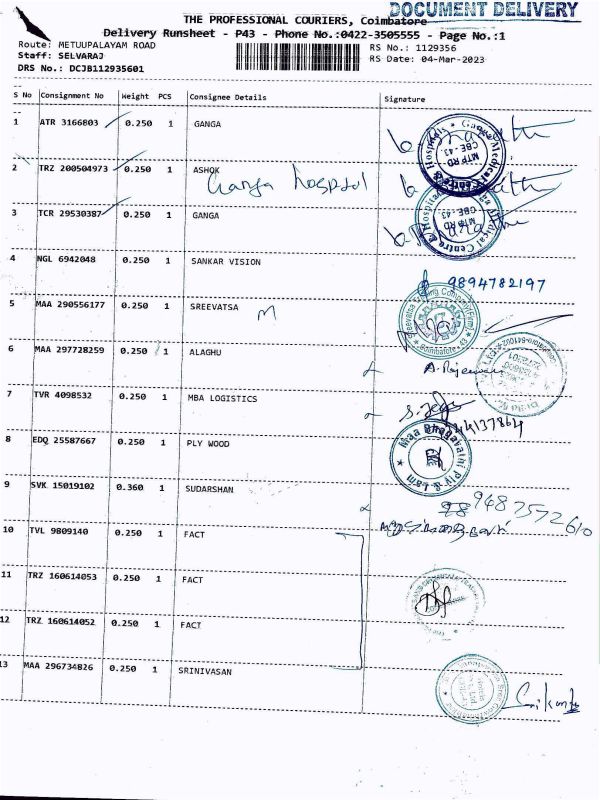 DOCUMENT DELIVERY
THE PROFESSIONAL COURIERS, Coimbatore
Delivery Runsheet - P43 - Phone No.:0422-3505555 - Page No.:1
Route: METUUPALAYAM ROAD
RS No.: 1129356
Staff: SELVARAJ
RS Date: 04-Mar-2023
DRS No.: DCJB112935601
S No Consignment No Weight PCS Consignee Details Signature
1 ATR 3166803 0.250 1 GANGA
2 TRZ 200504973 0.250 1 ASHOK
Ganga hospital
3 TCR 29530387 0.250 1 GANGA
4 NGL 6942048 0.250 1 SANKAR VISION
9894782197
5 MAA 290556177 0.250 1 SREEVATSA
M
6 MAA 297728259 0.250 1 ALAGHU
7 TVR 4098532 0.250 1 MBA LOGISTICS
8 EDQ 25587667 0.250 1 PLY WOOD
Maa Bhagavathi Ply & Lam
9 SVK 15019102 0.360 1 SUDARSHAN
10 TVL 9809140 0.250 1 FACT
11 TRZ 160614053 0.250 1 FACT
12 TRZ 160614052 0.250 1 FACT
13 MAA 296734826 0.250 1 SRINIVASAN